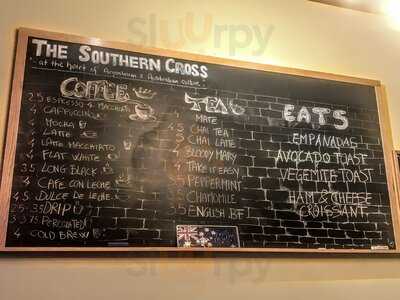 THE SOUTHERN CROSS
"at the heart of Argentinian & Australian culture"
COFFEE
2.5 ESPRESSO & MACCHIATO
4 CAPPUCCINO
4 MOCHA
4 LATTE
4 LATTE MACCHIATO
4 FLAT WHITE
3.5 LONG BLACK
4 CAFE CON LECHE
4.5 DULCE DE LECHE
2.5-3.5 DRIP
3-3.75 PERCOLATED
4 COLD BREW
TEA
MATE
CHAI TEA
4 CHAI LATTE
4 BLOODY MARY
TAKE IT EASY
3.5 PEPPERMINT
3.5 CHAMOMILE
3.5 ENGLISH BF
EATS
EMPANADAS
AVOCADO TOAST
VEGEMITE TOAST
HAM & CHEESE
CROISSANT
sluurpy
sluurpy